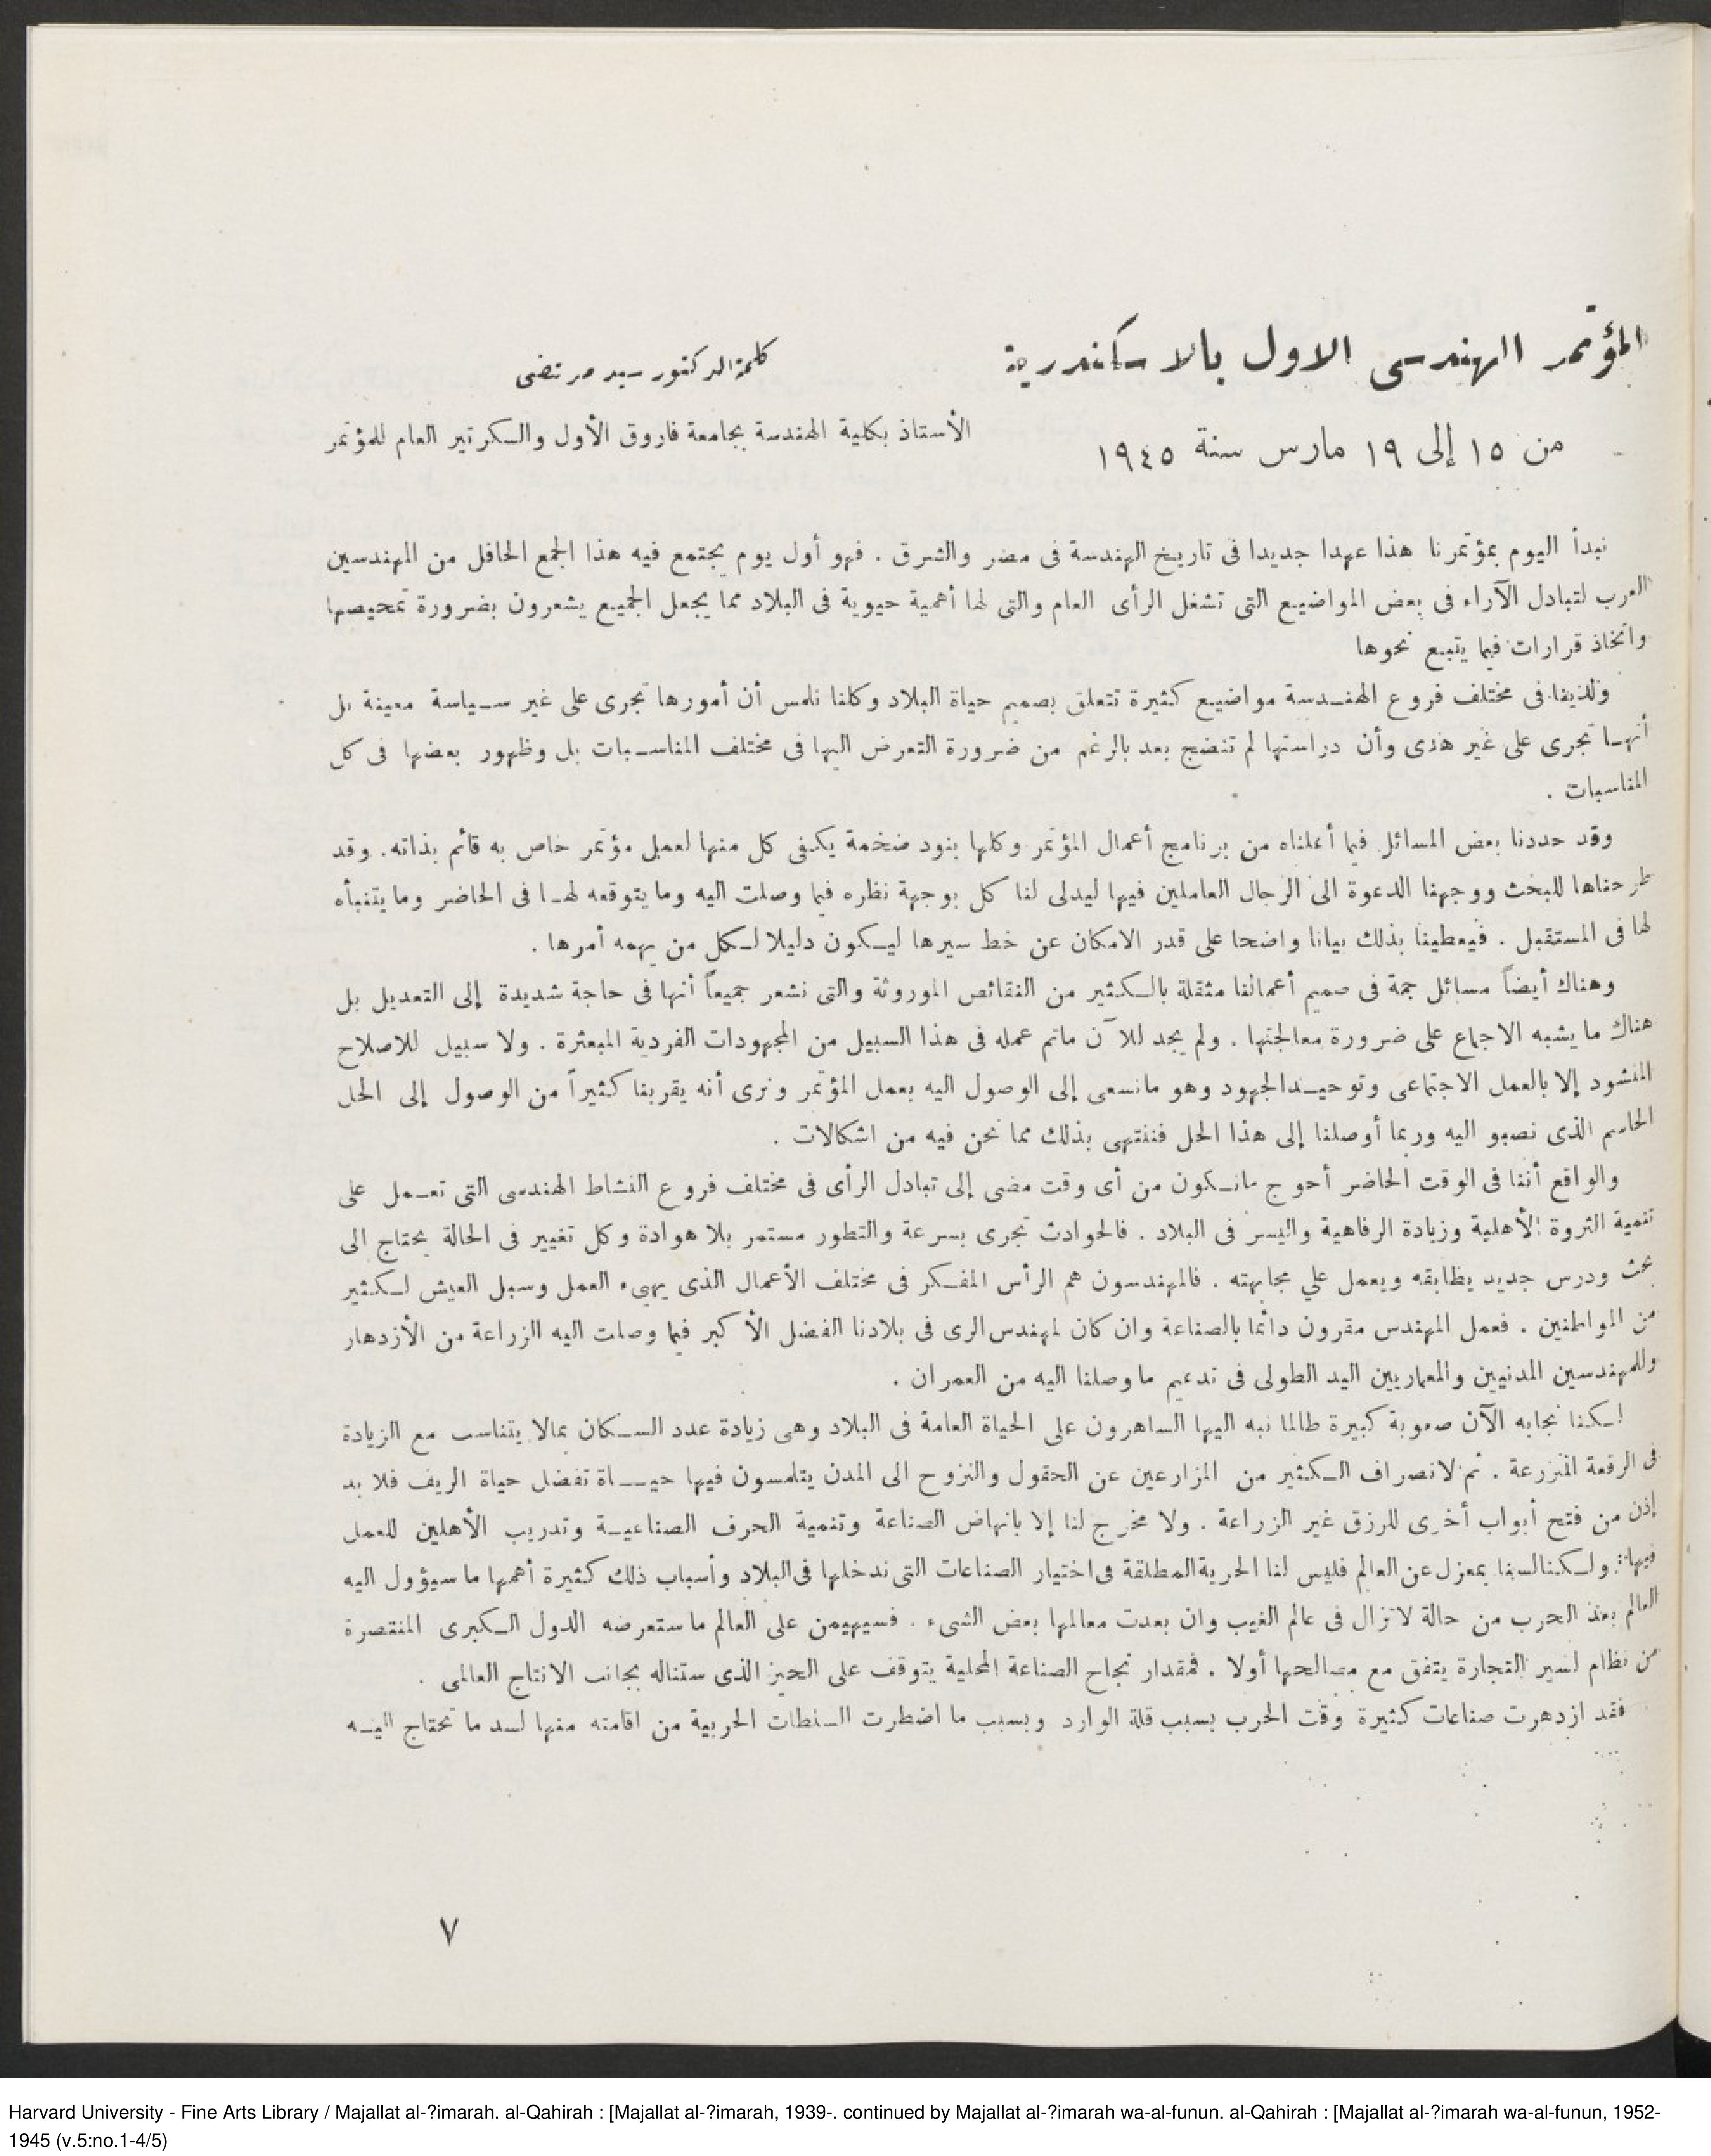 المؤتمر الهندسى الاول بالاسكندرية
من ١٥ إلى ١٩ مارس سنة ١٩٤٥
كلمة الدكتور سيد مرتضى
الأستاذ بكلية الهندسة بجامعة فاروق الأول والسكرتير العام للمؤتمر
نبدأ اليوم بمؤتمرنا هذا عهدا جديدا فى تاريخ الهندسة فى مصر والشرق . فهو أول يوم يجتمع فيه هذا الجمع الحافل من المهندسين
العرب لتبادل الآراء فى بعض المواضيع التى تشغل الرأى العام والتى لها أهمية حيوية فى البلاد مما يجعل الجميع يشعرون بضرورة تمحيصها
واتخاذ قرارات فيما يتبع نحوها
ولدينا فى مختلف فروع الهندسة مواضيع كثيرة تتعلق بصميم حياة البلاد وكلنا نلمس أن أمورها تجرى على غير سياسة معينة بل
أنها تجرى على غير هدى وأن دراستها لم تنضج بعد بالرغم من ضرورة التعرض اليها فى مختلف المناسبات بل وظهور بعضها فى كل
المناسبات .
وقد حددنا بعض المسائل فيما أعلناه من برنامج أعمال المؤتمر وكلها بنود ضخمة يكفى كل منها لعمل مؤتمر خاص به قائم بذاته . وقد
طرحناها للبحث ووجهنا الدعوة الى الرجال العاملين فيها ليدلى لنا كل بوجهة نظره فيما وصلت اليه وما يتوقعه لها فى الحاضر وما يتنبأه
لها فى المستقبل . فيعطينا بذلك بيانا واضحا على قدر الامكان عن خط سيرها ليكون دليلا لكل من يهمه أمرها .
وهناك أيضاً مسائل جمة فى صميم أعمالنا مثقلة بالكثير من النقائص الموروثة والتى نشعر جميعاً أنها فى حاجة شديدة إلى التعديل بل
هناك ما يشبه الاجماع على ضرورة معالجتها . ولم يجد للآن ماتم عمله فى هذا السبيل من المجهودات الفردية المبعثرة . ولا سبيل للاصلاح
المنشود إلا بالعمل الاجتماعى وتوحيد الجهود وهو مانسعى إلى الوصول اليه بعمل المؤتمر ونرى أنه يقربنا كثيراً من الوصول إلى الحل
الحاسم الذى نصبو اليه وربما أوصلنا إلى هذا الحل فننتهى بذلك مما نحن فيه من اشكالات .
والواقع أننا فى الوقت الحاضر أحوج مانكون من أى وقت مضى إلى تبادل الرأى فى مختلف فروع النشاط الهندسى التى تعمل على
تنمية الثروة الأهلية وزيادة الرفاهية واليسر فى البلاد . فالحوادث تجرى بسرعة والتطور مستمر بلا هوادة وكل تغيير فى الحالة يحتاج الى
بحث ودرس جديد يطابقه ويعمل علي مجابهته . فالمهندسون هم الرأس المفكر فى مختلف الأعمال الذى يهىء العمل وسبل العيش لكثير
من المواطنين . فعمل المهندس مقرون دائما بالصناعة وان كان لمهندس الرى فى بلادنا الفضل الأكبر فيما وصلت اليه الزراعة من الأزدهار
وللمهندسين المدنيين والمعماريين اليد الطولى فى تدعيم ما وصلنا اليه من العمران .
لكننا نجابه الآن صعوبة كبيرة طالما نبه اليها الساهرون على الحياة العامة فى البلاد وهى زيادة عدد السكان بمالا يتناسب مع الزيادة
فى الرقعة المنزرعة . ثم لانصراف الكثير من المزارعين عن الحقول والنزوح الى المدن يتلمسون فيها حياة تفضل حياة الريف فلا بد
إذن من فتح أبواب أخرى للرزق غير الزراعة . ولا مخرج لنا إلا بانهاض الصناعة وتنمية الحرف الصناعية وتدريب الأهلين للعمل
فيها . ولكننا لسنا بمعزل عن العالم فليس لنا الحرية المطلقة فى اختيار الصناعات التى ندخلها فى البلاد وأسباب ذلك كثيرة أهمها ما سيؤول اليه
العالم بعد الحرب من حالة لاتزال فى عالم الغيب وان بعدت معالمها بعض الشىء . فسيهيمن على العالم ما ستعرضه الدول الكبرى المنتصرة
من نظام لسير التجارة يتفق مع مصالحها أولا . فمقدار نجاح الصناعة المحلية يتوقف على الحيز الذى ستناله بجانب الانتاج العالمى .
فقد ازدهرت صناعات كثيرة وقت الحرب بسبب قلة الوارد وبسبب ما اضطرت السلطات الحربية من اقامته منها لسد ما تحتاج اليه
٧
Harvard University - Fine Arts Library / Majallat al-?imarah. al-Qahirah : [Majallat al-?imarah, 1939-. continued by Majallat al-?imarah wa-al-funun. al-Qahirah : [Majallat al-?imarah wa-al-funun, 1952-
1945 (v.5:no.1-4/5)